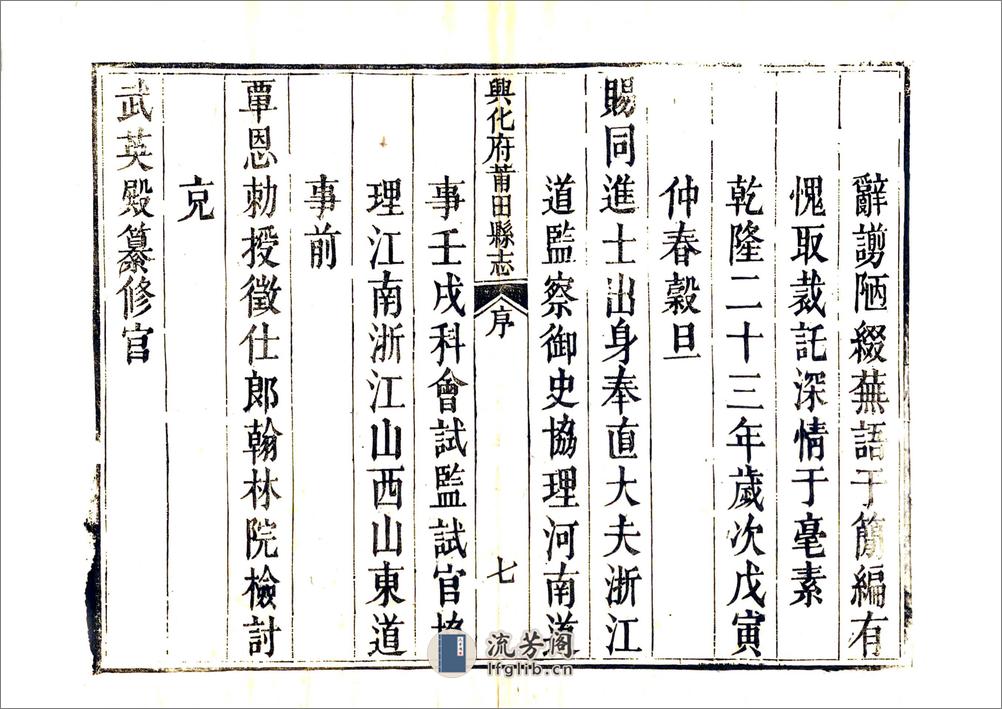 辭謭陋綴蕪語于簡編有
愧取裁託深情于毫素
乾隆二十三年歲次戊寅
仲春穀旦
賜同進士出身奉直大夫浙江
道監察御史協理河南道
興化府莆田縣志
序
七
事壬戌科會試監試官協
理江南浙江山西山東道
事前
覃恩勅授徵仕郎翰林院檢討
充
武英殿纂修官
流芳阁
lfglib.cn